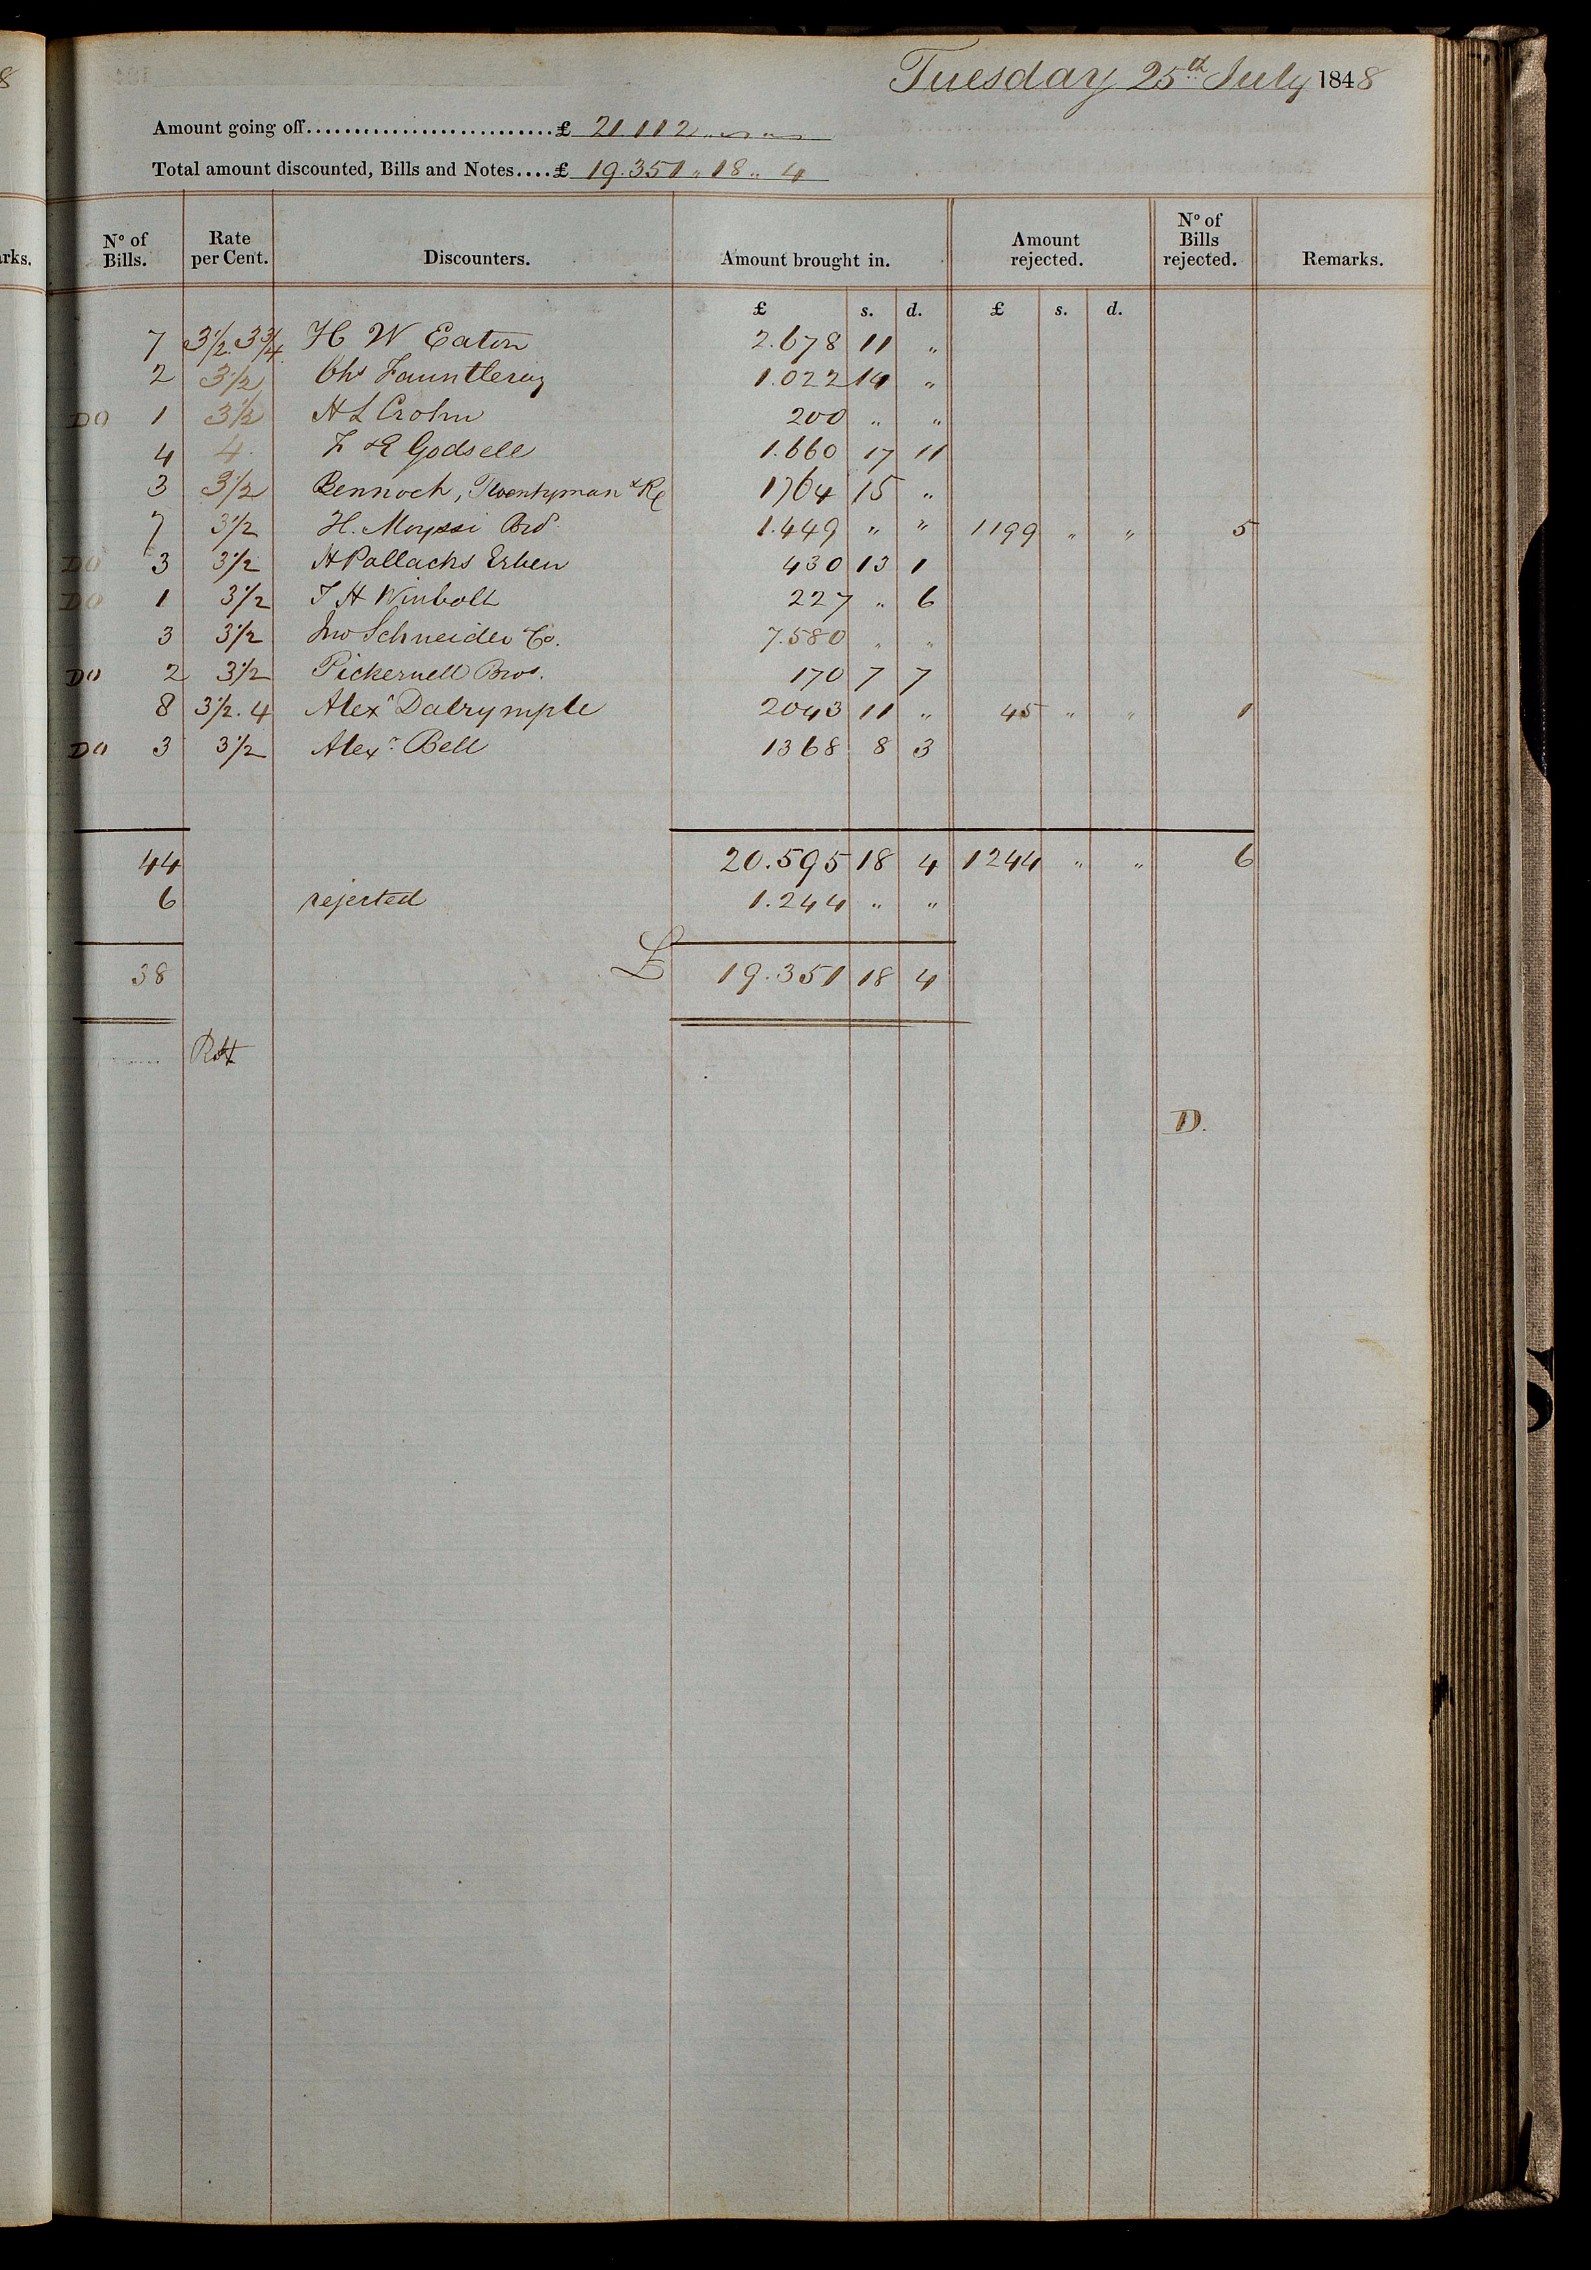 8
Tuesday 25th July 1848
Amount going off........................... £ 21.112 „ „ „
Total amount discounted, Bills and Notes.... £ 19.351 „ 18 „ 4
arks.
No of Bills. Rate per Cent. Discounters. Amount brought in. Amount rejected. No of Bills rejected. Remarks.
£ s. d. £ s. d.
7 3½. 3¾ H W Eaton 2.678 11 „
2 3½ Chs Fauntleroy 1.022 14 „
DO 1 3½ H L Crohn 200 „ „
4 4. F & E Godsell 1.660 17 11
3 3½ Bennoch, Twentyman & R 1764 15 „
7 3½ H. Bro 1.449 „ „ 1199 „ „ 5
DO 3 3½ H Pollachs Erben 430 13 1
DO 1 3½ T H Winbolt 227 „ 6
3 3½ Jno Schneider Co. 7.580 „ „
DO 2 3½ Pickernell Bros. 170 7 7
8 3½. 4 Alexr Dalrymple 2043 11 „ 45 „ „ 1
DO 3 3½ Alexr Bell 1368 8 3
44 20.595 18 4 1244 „ „ 6
6 rejected 1.244 „ „
38 £ 19.351 18 4
RH
D.